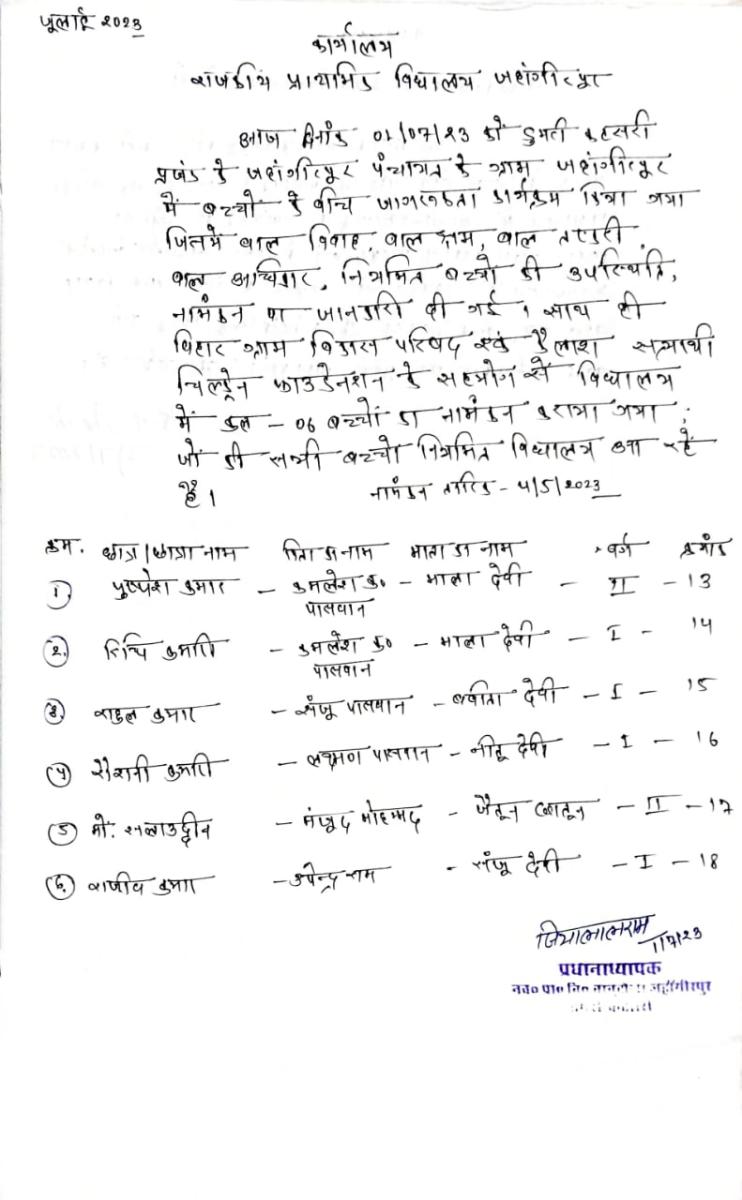 जुलाई 2023
कार्यालय
राजकीय प्राथमिक विद्यालय जहांगीरपुर
आज दिनांक 01/07/23 को डुमरी कटसरी
प्रखंड के जहांगीरपुर पंचायत के ग्राम जहांगीरपुर
में बच्चो के बीच जागरूकता कार्यक्रम किया गया
जिसमे बाल विवाह, बाल श्रम, बाल तस्करी,
बाल अधिकार, नियमित बच्चो की उपस्थिति,
नामंकन का जानकारी दी गई। साथ ही
बिहार ग्राम विकास परिषद एवं कैलाश सत्यार्थी
चिल्ड्रेन फाउंडेनशन के सहयोग से विद्यालय
में कुल - 06 बच्चों का नामंकन कराया गया;
जो की सभी बच्चो नियमित विद्यालय आ रहे
है। नामंकन तारिक - 4/5/2023
क्रम. छात्र/छात्रा नाम पिता का नाम माता का नाम वर्ग क्रमांक
1) पुष्पेश कुमार - कमलेश कु० पासवान - माला देवी - II - 13
2. रिचि कुमारी - कमलेश कु० पासवान - माला देवी - I - 14
3. राहुल कुमार - संजू पासवान - बबीता देवी - I - 15
4) रौशनी कुमारी - लक्ष्मण पासवान - नीतू देवी - I - 16
5) मो. सलाउद्दीन - मंजूद मोहम्मद - जैतून खातून - II - 17
6. राजीव कुमार - उपेन्द्र राम - संजू देवी - I - 18
जियालालराम
1/7/23
प्रधानाध्यापक
नव० प्रा० वि० जहाँगीरपुर